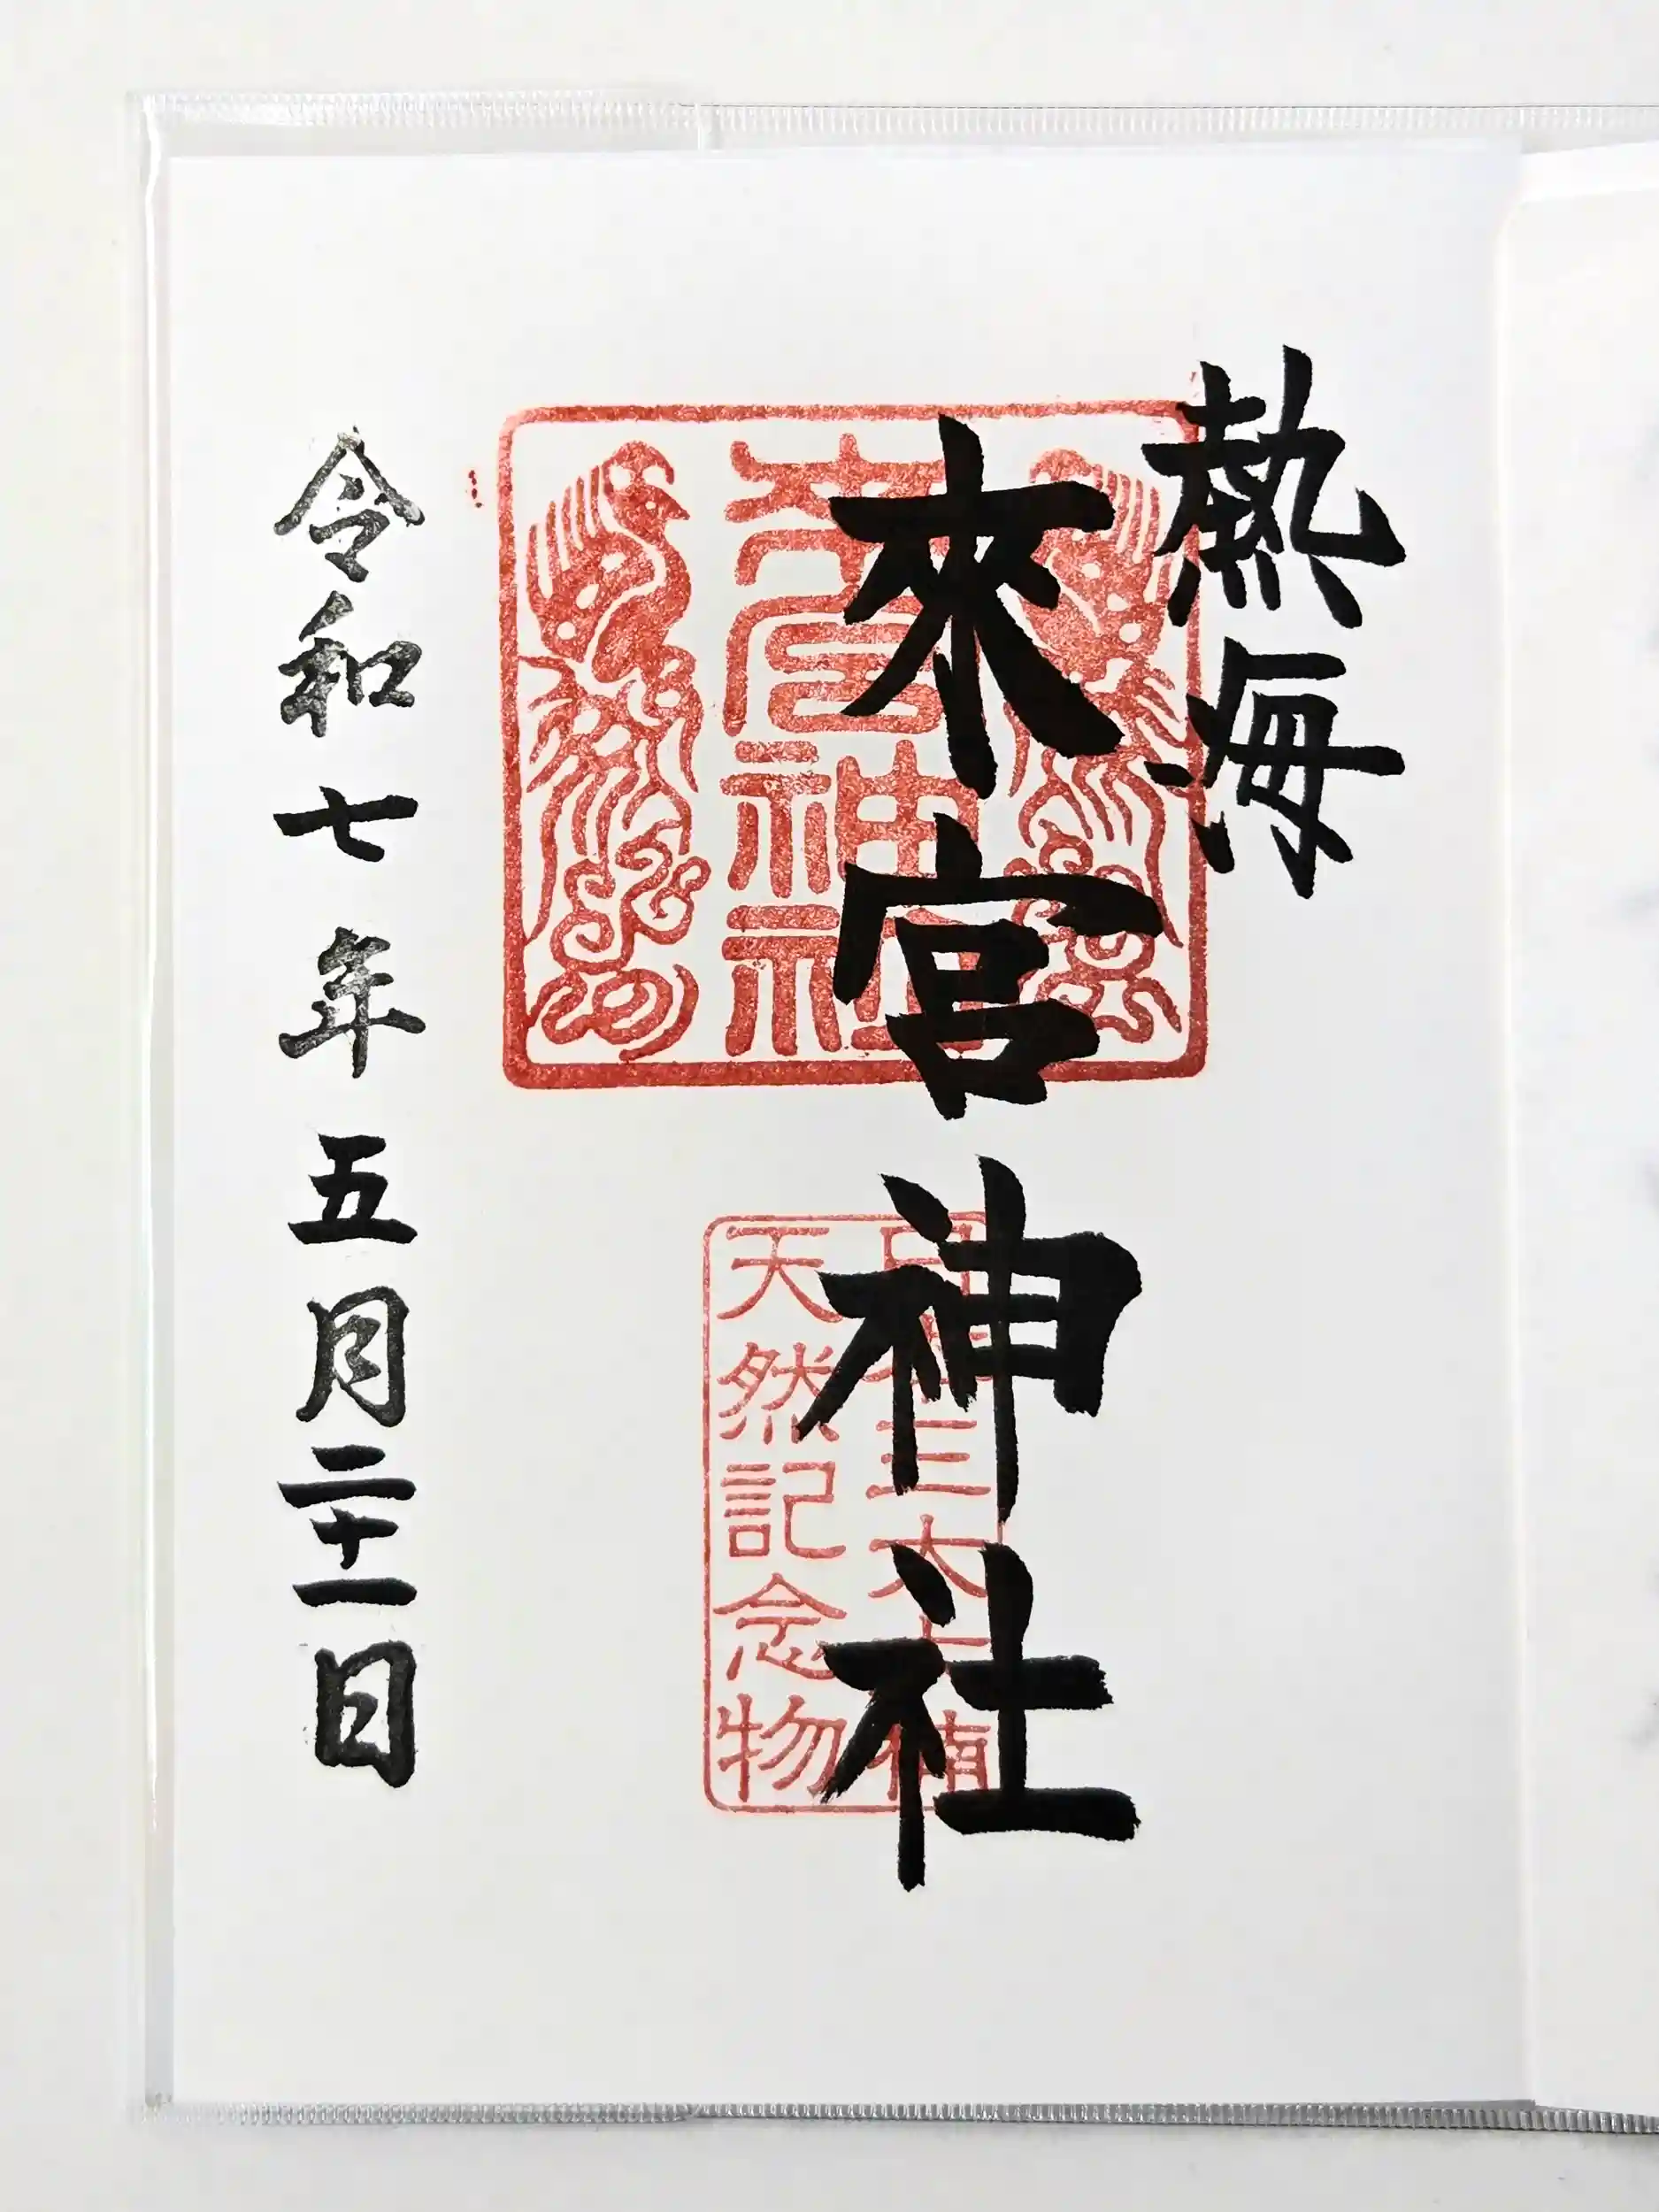 熱海
來宮神社
来宮神社
天然記念物
令和七年五月二十一日